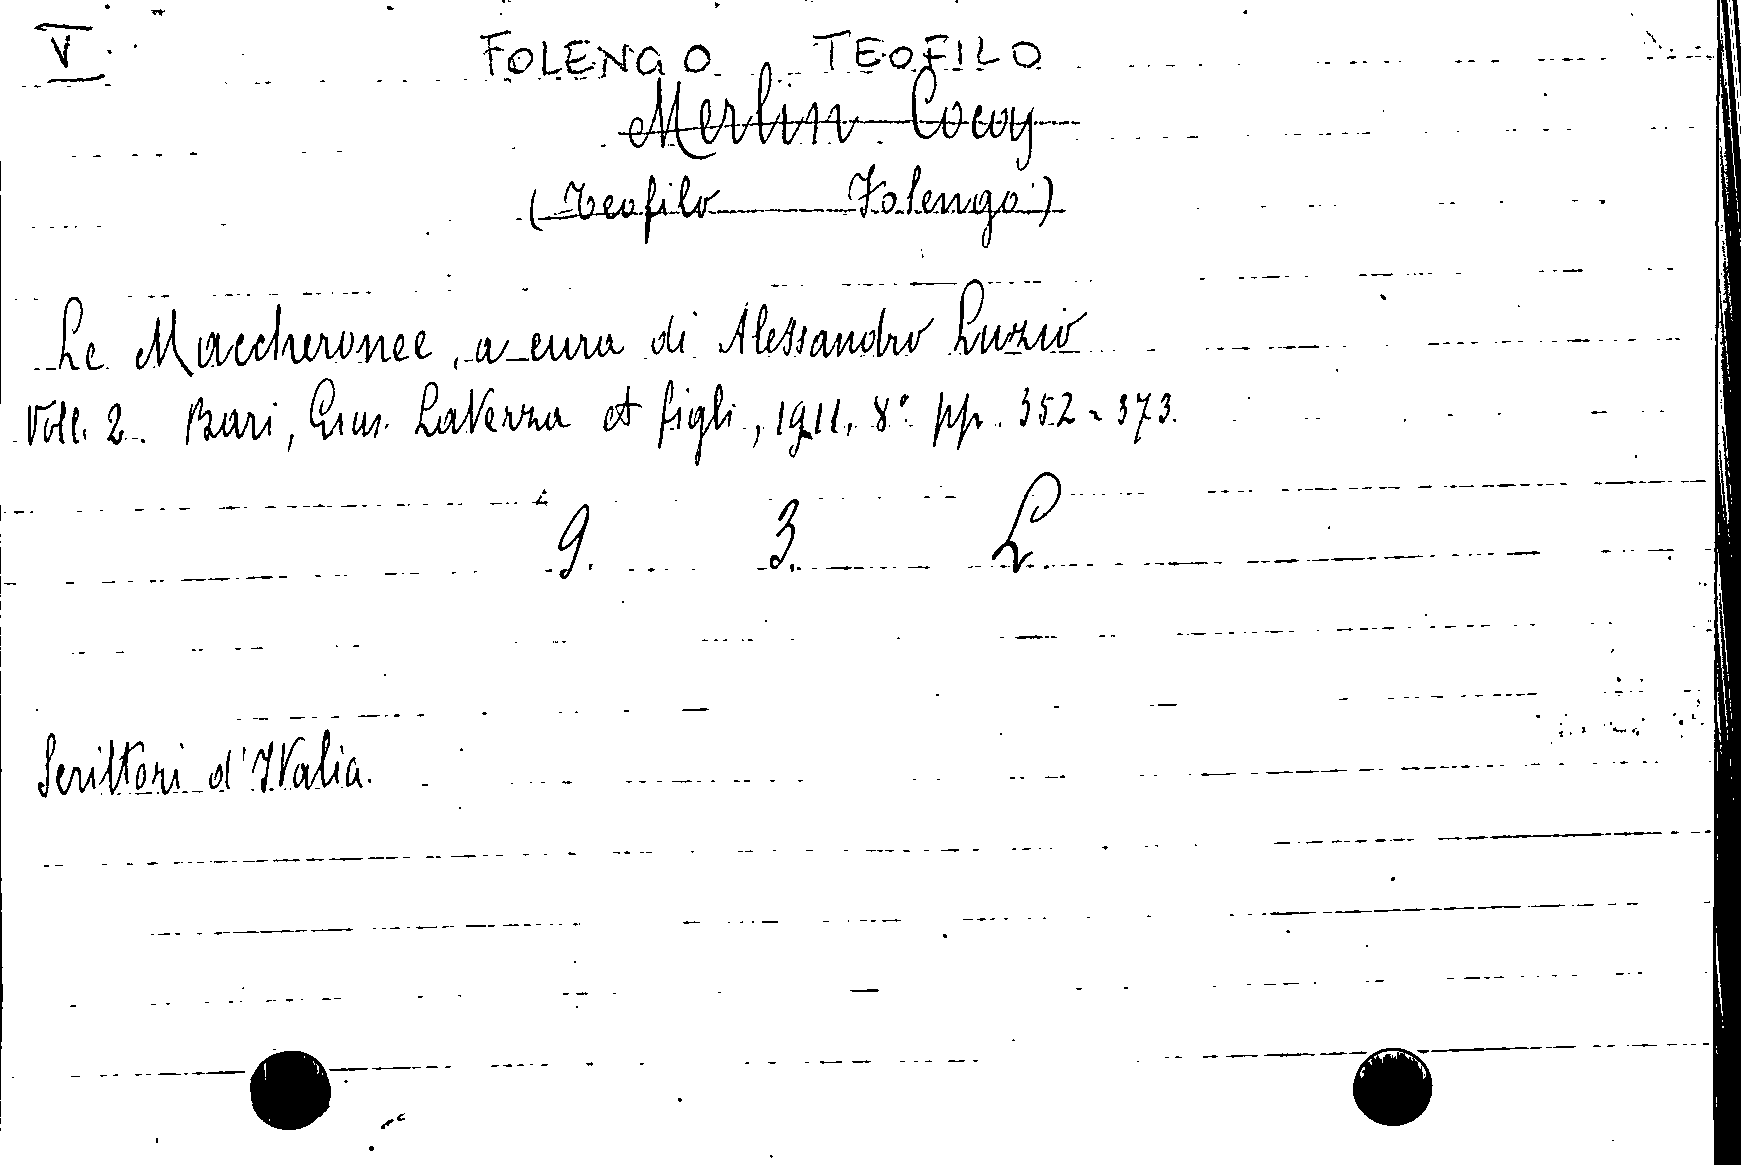 V
FOLENGO TEOFILO
Merlin Cocay
(Teofilo Folengo)
Le Maccheronee, a cura di Alessandro Luzio
Voll. 2. Bari, Gius. Laterza et figli, 1911, 8° pp. 352-373.
9. 3. L
Scrittori d'Italia.